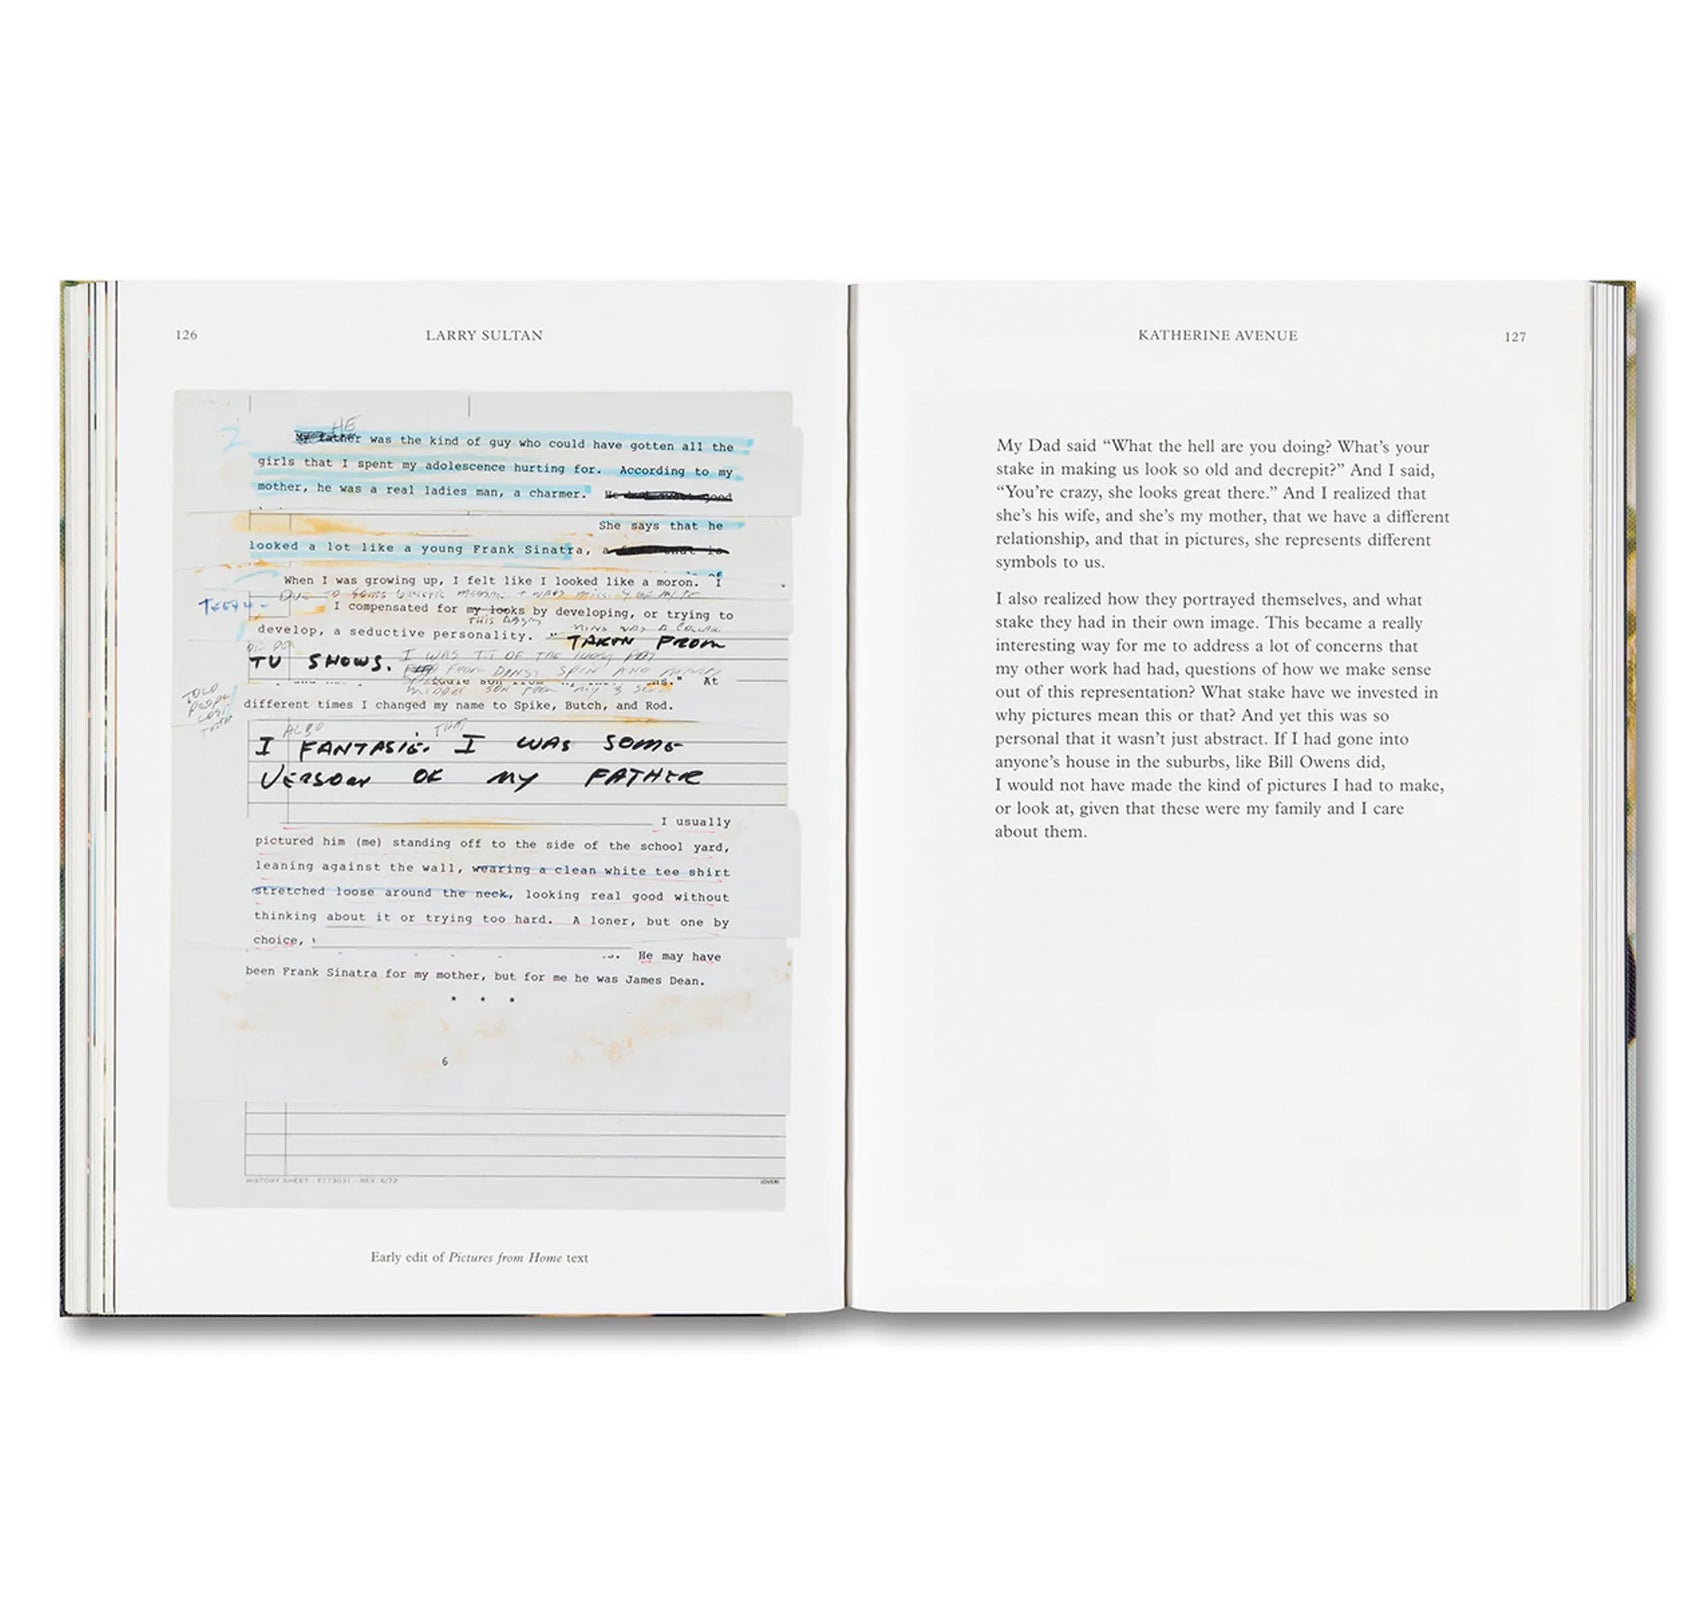 126
LARRY SULTAN
HE
My father was the kind of guy who could have gotten all the
girls that I spent my adolescence hurting for. According to my
mother, he was a real ladies man, a charmer. He good
She says that he
looked a lot like a young Frank Sinatra, a
of
When I was growing up, I felt like I looked like a moron. I
DUE TO SOME
TEETH - I compensated for my looks by developing, or trying to
THIS
MINE WAS A
develop, a seductive personality. TAKEN FROM
TV SHOWS. I WAS
FROM SPIN AND
." At
MIDDLE SON FROM MY 3
TOLD
PEOPLE
LOST
TEETH
different times I changed my name to Spike, Butch, and Rod.
ALSO THAT
I FANTASIE. I WAS SOME
VERSION OF MY FATHER
I usually
pictured him (me) standing off to the side of the school yard,
leaning against the wall, wearing a clean white tee shirt
stretched loose around the neck, looking real good without
thinking about it or trying too hard. A loner, but one by
choice,
He may have
been Frank Sinatra for my mother, but for me he was James Dean.
* * *
6
HISTORY SHEET - F173031 - REV. 6/72
(OVER)
Early edit of Pictures from Home text
KATHERINE AVENUE
127
My Dad said “What the hell are you doing? What’s your
stake in making us look so old and decrepit?” And I said,
“You’re crazy, she looks great there.” And I realized that
she’s his wife, and she’s my mother, that we have a different
relationship, and that in pictures, she represents different
symbols to us.
I also realized how they portrayed themselves, and what
stake they had in their own image. This became a really
interesting way for me to address a lot of concerns that
my other work had had, questions of how we make sense
out of this representation? What stake have we invested in
why pictures mean this or that? And yet this was so
personal that it wasn’t just abstract. If I had gone into
anyone’s house in the suburbs, like Bill Owens did,
I would not have made the kind of pictures I had to make,
or look at, given that these were my family and I care
about them.